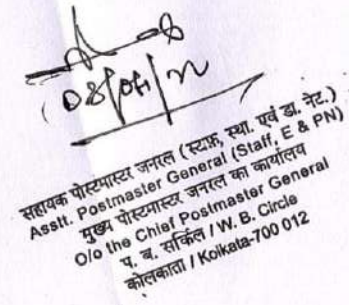 सहायक पोस्टमास्टर जनरल (स्टाफ़, स्था. एवं डा. नेट.)
Asstt. Postmaster General (Staff, E & PN)
मुख्य पोस्टमास्टर जनरल का कार्यालय
O/o the Chief Postmaster General
प. ब. सर्किल / W. B. Circle
कोलकाता / Kolkata-700 012